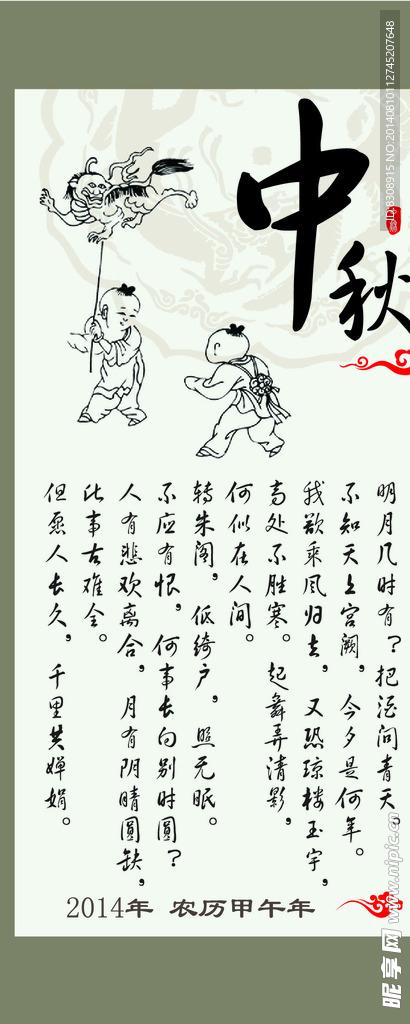 中秋
明月几时有？把酒问青天，
不知天上宫阙，今夕是何年。
我欲乘风归去，又恐琼楼玉宇，
高处不胜寒。起舞弄清影，
何似在人间。
转朱阁，低绮户，照无眠。
不应有恨，何事长向别时圆？
人有悲欢离合，月有阴晴圆缺，
此事古难全。
但愿人长久，千里共婵娟。
2014年 农历甲午年
昵享网 www.nipic.cn
8308915 NO:20140810112745207648